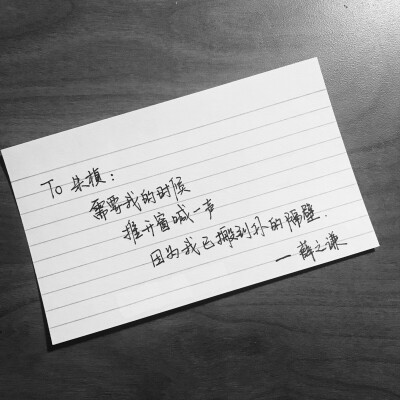 To 朱桢：
需要我的时候
推开窗喊一声
因为我已搬到你的隔壁.
一薛之谦